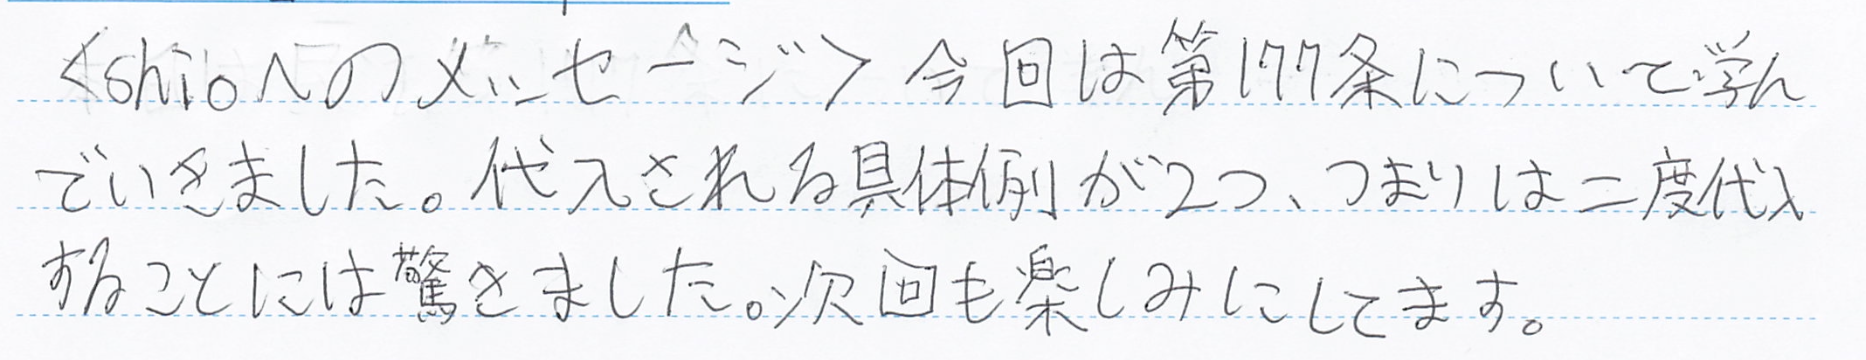 <shioへのメッセージ> 今回は第177条について学ん
でいきました。代入される具体例が2つ、つまりは二度代入
することには驚きました。次回も楽しみにしてます。